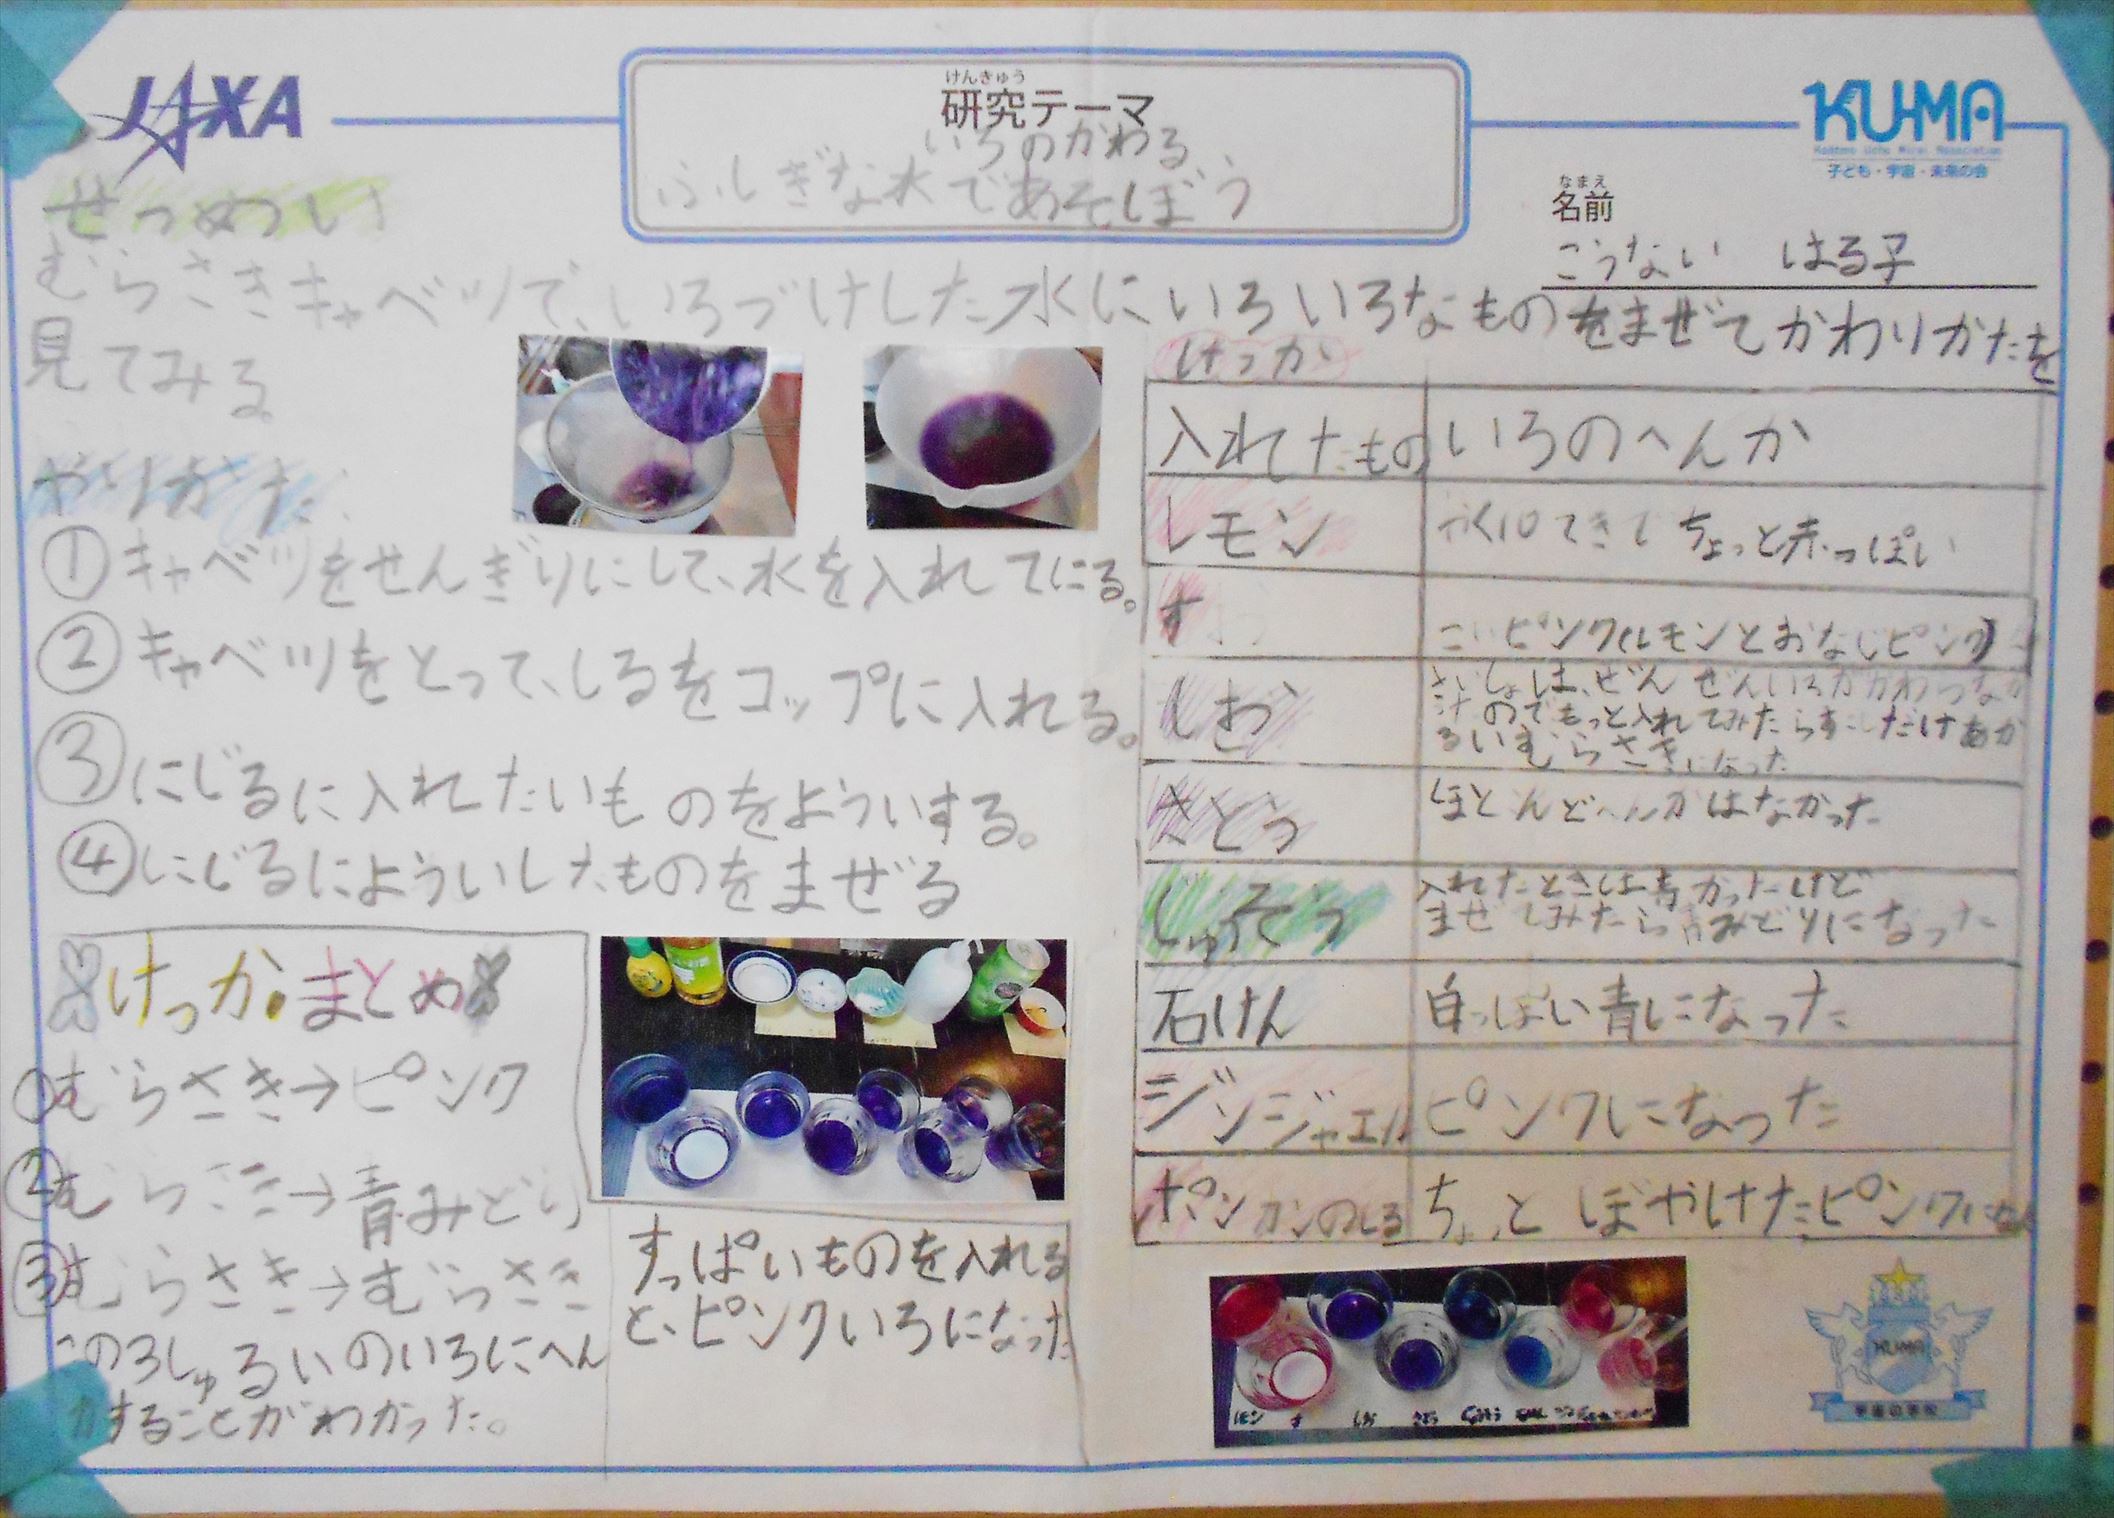 JAXA
けんきゅう
研究テーマ
いろのかわる
ふしぎな水であそぼう
KU-MA
Kodomo Uchu Mirai Association
子ども・宇宙・未来の会
なまえ
名前
こうない はる子
せつめつい
むらさきキャベツで、いろづけした水にいろいろなものをまぜてかわりかたを
見てみる。
やりかた
①キャベツをせんぎりにして、水を入れてにる。
②キャベツをとって、しるをコップに入れる。
③にじるに入れたいものをよういする。
④にじるによういしたものをまぜる
けっか
入れたもの いろのへんか
レモン やく10てきでちょっと赤っぽい
す こいピンク(レモンとおなじピンク)
しお さいしょは、ぜんぜんいろがかわつなか
のでもっと入れてみたらすこしだけあか
るいむらさきになった
さとう ほとんどへんかはなかった
じゅうそう 入れたときは青かったけど
まぜてみたら青みどりになった
石けん 白っぽい青になった
ジンジャエル ピンクになった
ポンカンのしる ちょっとぼやけたピンクに
けっかまとめ
①むらさき→ピンク
②むらさき→青みどり
③むらさき→むらさき
この3しゅるいのいろにへん
かすることがわかった。
すっぱいものを入れる
と、ピンクいろになった
レモン す しお さとう
KUMA
宇宙の学校